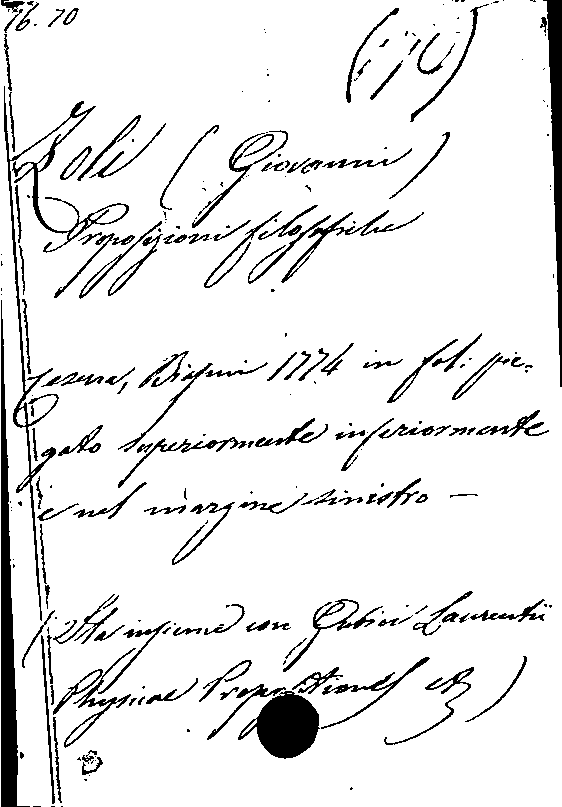 76. 70
Zoli (Giovanni)
Proposizioni filosofiche
Cesena, Biasini 1774 in fol: pie-
gato superiormente inferiormente
e nel margine sinistro —
(Sta insieme con Laurentii
Physicae Propositiones &)